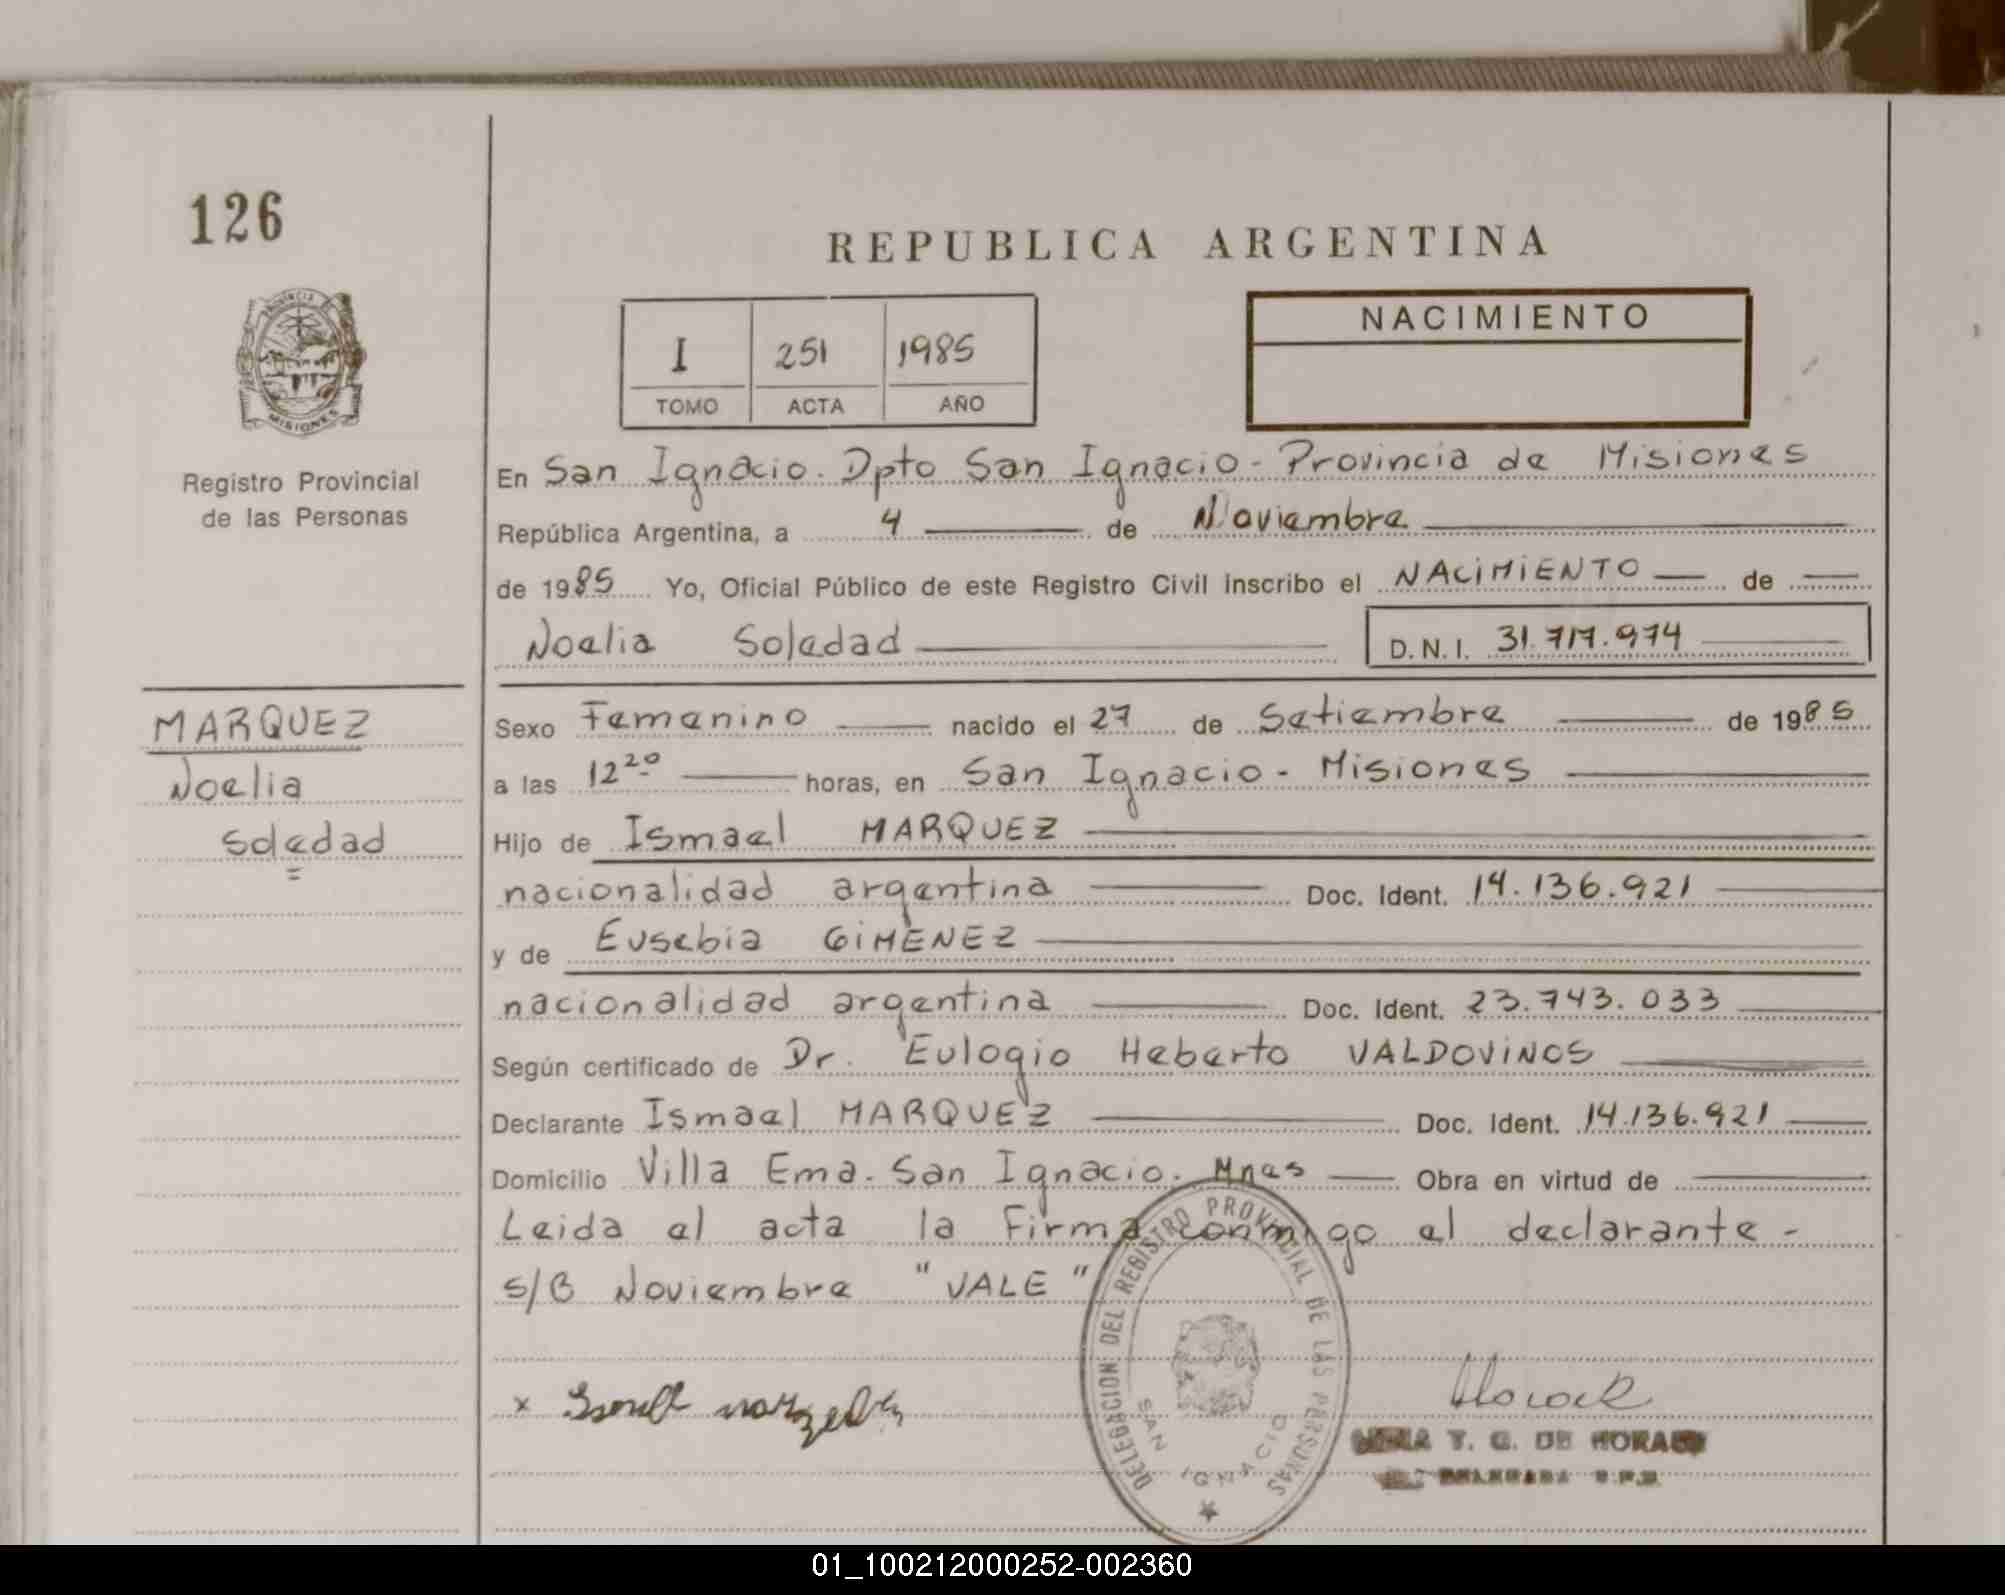 126
REPUBLICA ARGENTINA
PROVINCIA
MISIONES
I 251 1985
TOMO ACTA AÑO
NACIMIENTO
Registro Provincial
de las Personas
En San Ignacio. Dpto San Ignacio - Provincia de Misiones
República Argentina, a 4 de Noviembre
de 1985 Yo, Oficial Público de este Registro Civil inscribo el NACiMiENTO de
Noelia Soledad D.N.I. 31.717.974
MARQUEZ
Noelia
Soledad
Sexo Femenino nacido el 27 de Setiembre de 1985
a las 12 20 horas, en San Ignacio - Misiones
Hijo de Ismael MARQUEZ
nacionalidad argentina Doc. Ident. 14.136.921
y de Eusebia GiMENEZ
nacionalidad argentina Doc. Ident. 23.743.033
Según certificado de Dr. Eulogio Heberto VALDOViNOS
Declarante Ismael MARQUEZ Doc. Ident. 14.136.921
Domicilio Villa Ema. San Ignacio. Mnes Obra en virtud de
Leida el acta la Firma conmigo el declarante -
S/B Noviembre "VALE"
DELEGACION DEL REGISTRO PROVINCIAL DE LAS PERSONAS
SAN IGNACIO
x
T. G. DE
01_100212000252-002360